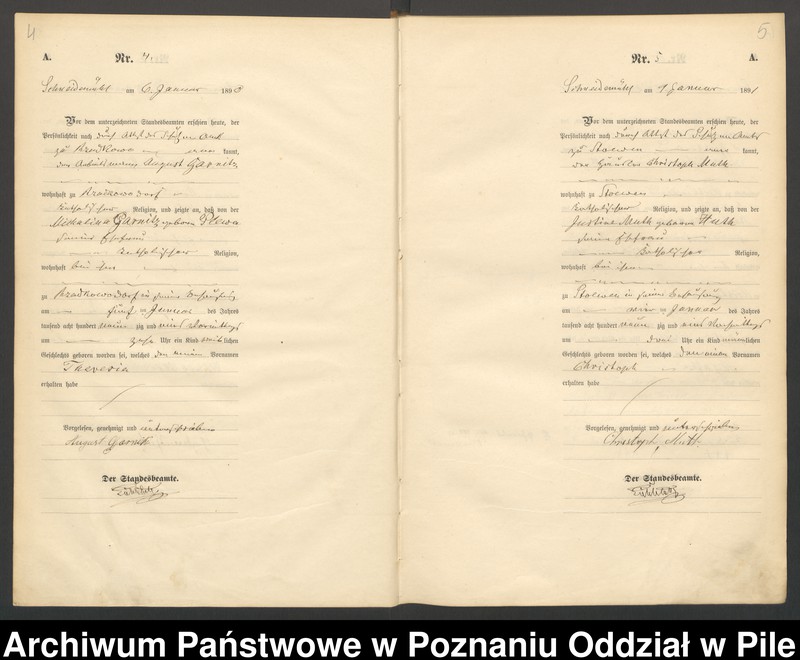 4
A.
Nr. 4.
Schneidemühl am 6. Januar 189
Vor dem unterzeichneten Standesbeamten erschien heute, der
Persönlichkeit nach durch Attest des
zu kannt,
der Arbeitsmann August Garnitz
wohnhaft zu dorf
katholischer Religion, und zeigte an, daß von der
Michalina Garnitz geboren Plewa
seiner Ehefrau
katholischer Religion,
wohnhaft bei ihm
zu dorf in seiner Behausung
am fünf ten Januar des Jahres
tausend acht hundert neun zig und eins Vormittags
um zehn Uhr ein Kind weiblichen
Geschlechts geboren worden sei, welches den einen Vornamen
erhalten habe
Vorgelesen, genehmigt und unterschrieben
August Garnitz
Der Standesbeamte.
5
Nr. 5
A.
Schneidemühl am Januar 1891
Vor dem unterzeichneten Standesbeamten erschien heute, der
Persönlichkeit nach durch Attest des
zu Stoewen kannt,
der Häusler Christoph Muth
wohnhaft zu Stoewen
katholischer Religion, und zeigte an, daß von der
Justine Muth geboren Huth
seiner Ehefrau
katholischer Religion,
wohnhaft bei ihm
zu Stoewen in seiner Behausung
am vier ten Januar des Jahres
tausend acht hundert neun zig und eins Nachmittags
um drei Uhr ein Kind männlichen
Geschlechts geboren worden sei, welches den einen Vornamen
Christoph
erhalten habe
Vorgelesen, genehmigt und unterschrieben
Christoph Muth
Der Standesbeamte.
Archiwum Państwowe w Poznaniu Oddział w Pile